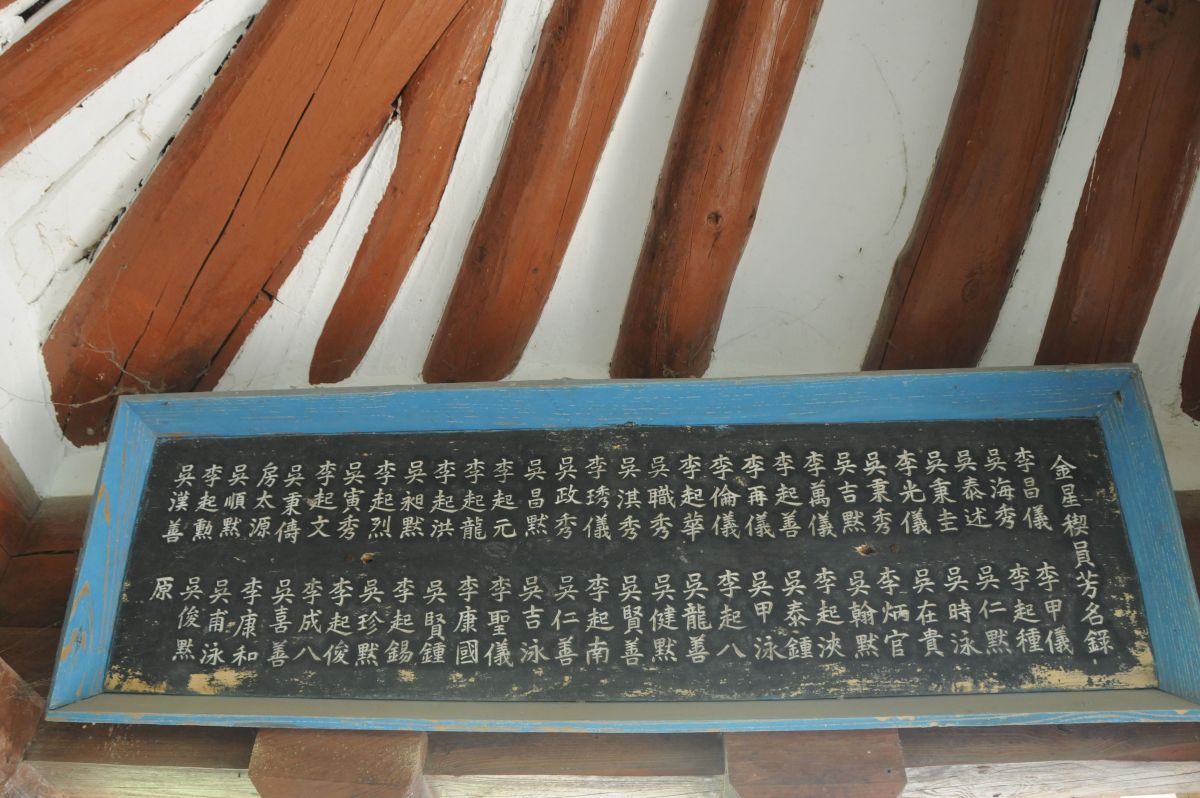 金星稧員芳名録
李昌儀
吳海秀
吳泰述
吳秉圭
李光儀
吳秉秀
吳吉默
李萬儀
李起善
李再儀
李倫儀
李起華
吳職秀
吳淇秀
李琇儀
吳政秀
吳昌默
李起元
李起龍
李起洪
吳昶默
李起烈
吳寅秀
李起文
吳秉傳
房太源
吳順默
李起勲
吳漢善
李甲儀
李起種
吳仁默
吳時泳
吳在貴
李炳官
吳翰默
李起浹
吳泰鍾
吳甲泳
李起八
吳龍善
吳健默
吳賢善
李起南
吳仁善
吳吉泳
李聖儀
李康國
吳賢鍾
李起錫
吳珍默
李起俊
李成八
吳喜善
李康和
吳甫泳
吳俊默
原